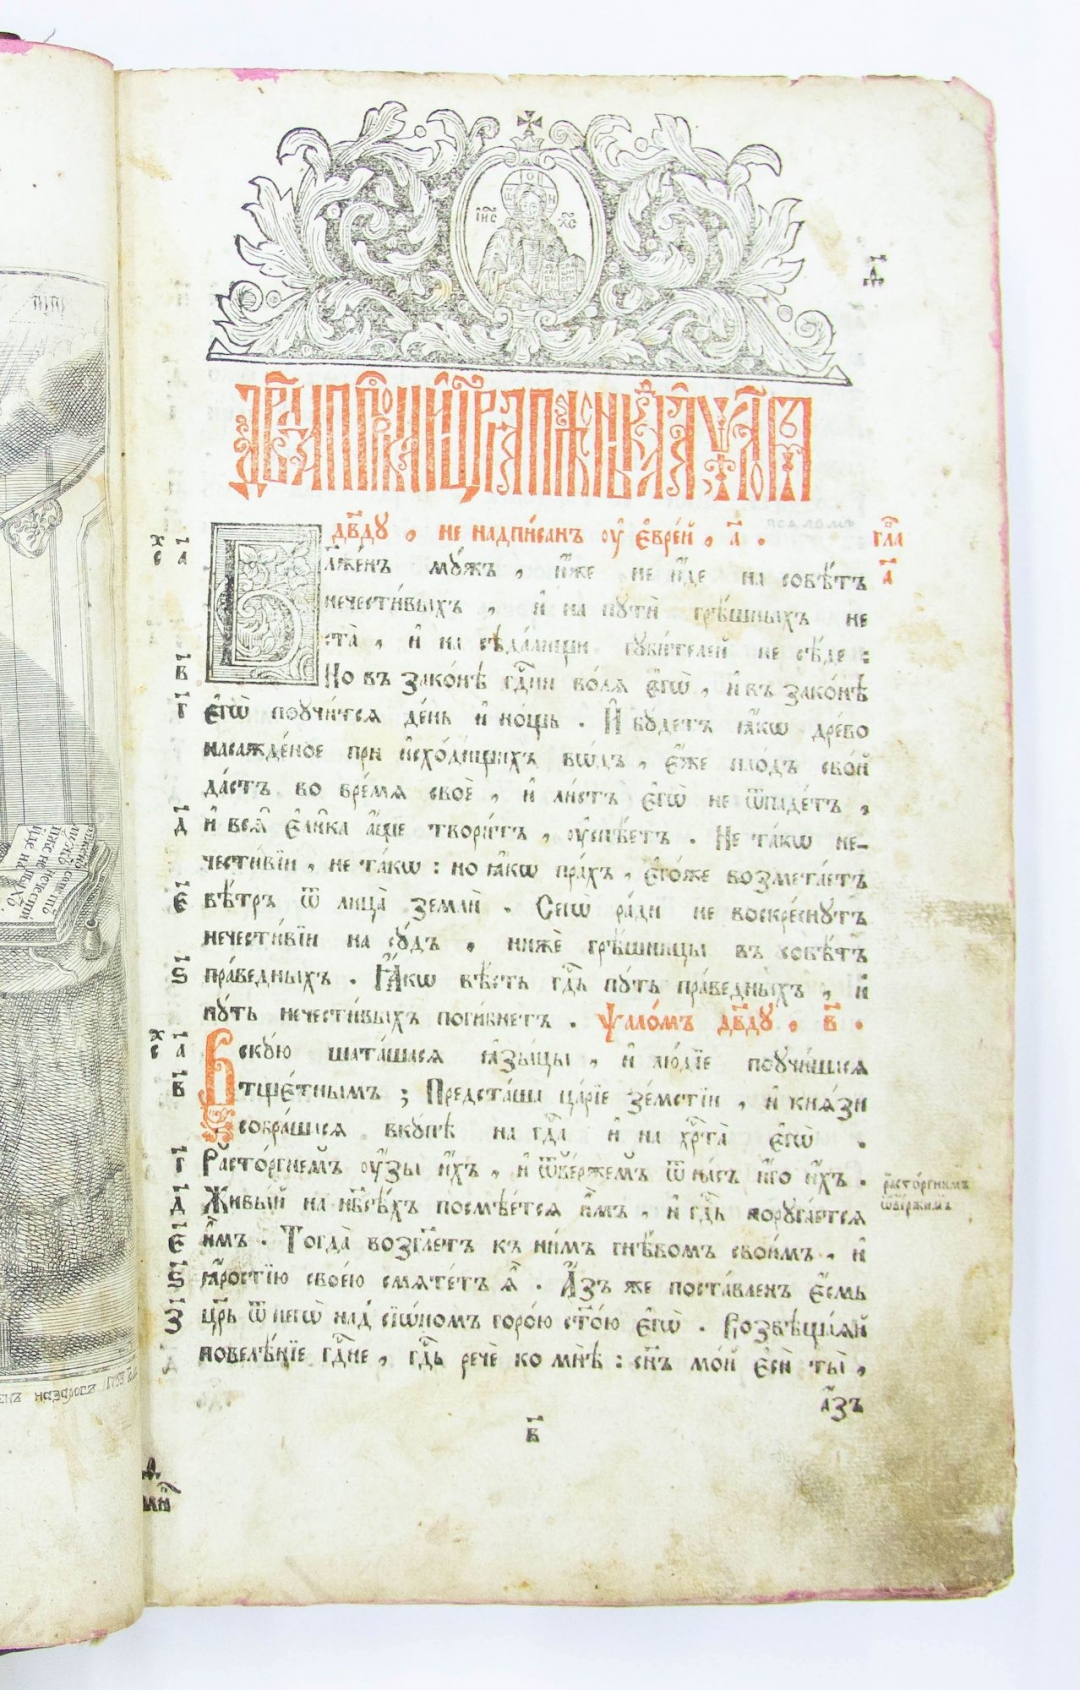 дв҃дꙋ , не надпи́санъ ᲂу҆ є҆врє́й , а҃ .
гла
а҃
Бл҃же́нъ мꙋ́жъ , и҆́же не и҆́де на совѣ́тъ
нечести́выхъ , и҆ на пꙋтѝ грѣ́шныхъ не
ста̀ , и҆ на сѣда́лищи гꙋби́телей не сѣ́де :
Но въ зако́нѣ гдⷭ҇ни во́лѧ є҆гѡ̀ , и҆ въ зако́нѣ
є҆гѡ̀ поꙋчи́тсѧ де́нь и҆ но́щь . И҆ бꙋ́детъ ꙗ҆́кѡ дре́во
насажде́ное при и҆схо́дищихъ во́дъ , є҆́же пло́дъ сво́й
да́стъ во вре́мѧ своѐ , и҆ ли́стъ є҆гѡ̀ не ѿпаде́тъ ,
и҆ всѧ҄ є҆ли̑ка а҆́ще твори́тъ , ᲂу҆спѣ́етъ . Не та́кѡ не-
чести́вїи , не та́кѡ : но ꙗ҆́кѡ пра́хъ , є҆го́же возмета́етъ
вѣ́тръ ѿ лица̀ землѝ . Сегѡ̀ ра́ди не воскре́снꙋтъ
нечести́вїи на сꙋ́дъ , нижѐ грѣ̑шницы въ совѣ́тъ
пра́ведныхъ . Ꙗ҆́кѡ вѣ́сть гдⷭ҇ь пꙋ́ть пра́ведныхъ , и҆
пꙋ́ть нечести́выхъ поги́бнетъ . Ѱало́мъ дв҃дꙋ , в҃ .
Вскꙋ́ю шата́шасѧ ꙗ҆зы́цы , и҆ лю́дїе поꙋчи́шасѧ
тще́тнымъ ; Предста́ша ца́рїе зе́мстїи , и҆ кнѧ́зи
собра́шасѧ вкꙋ́пѣ на гдⷭ҇а и҆ на хрⷭ҇та̀ є҆гѡ̀ .
Расто́ргнемъ ᲂу҆́зы и҆́хъ , и҆ ѿве́ржемъ ѿ на́съ и҆́го и҆́хъ .
расто́ргнимъ
ѿве́ржимъ
Живы́й на нб҃сѣ́хъ посмѣе́тсѧ и҆̀мъ , и҆ гдⷭ҇ь порꙋга́етсѧ
и҆̀мъ . Тогда̀ возгл҃етъ къ ни́мъ гнѣ́вомъ свои́мъ , и҆
ꙗ҆́ростїю свое́ю смѧте́тъ ѧ҆̀ . А҆́зъ же поста́вленъ є҆́смь
цр҃ь ѿ негѡ̀ над̾ сїѡ́номъ горо́ю ст҃о́ю є҆гѡ̀ . Возвѣща́ѧй
повелѣ́нїе гдⷭ҇не , гдⷭ҇ь речѐ ко мнѣ̀ : сн҃ъ мо́й є҆сѝ ты̀ ,
а҆́зъ
в҃